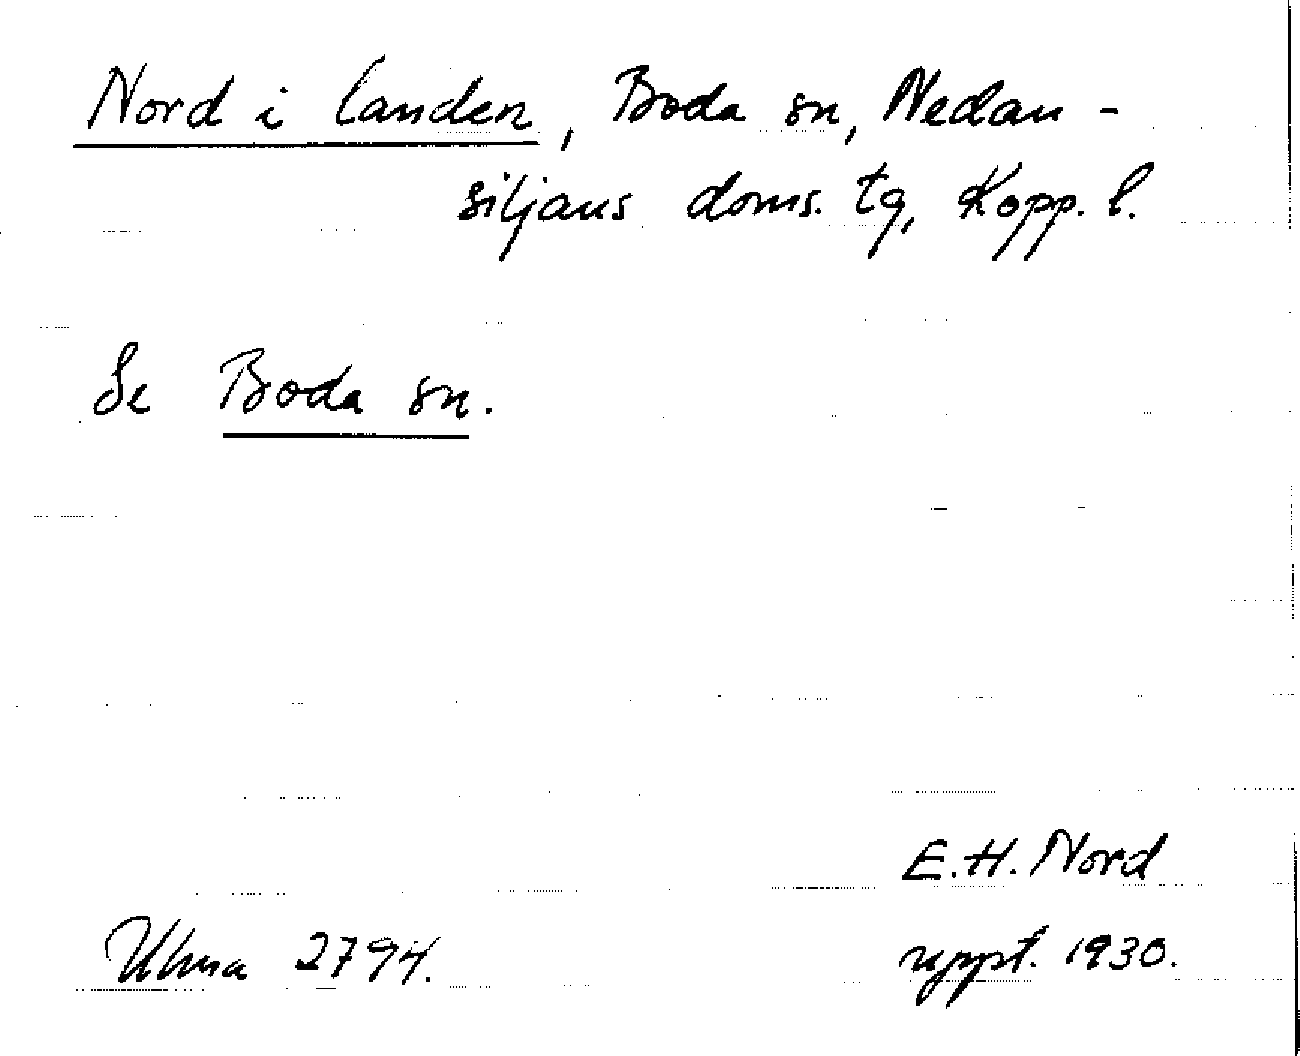 Nord i landen, Boda sn, Nedan-
siljans doms. tg, Kopp. l.
Se Boda sn.
E.H. Nord
Ulma 2794.
uppt. 1930.